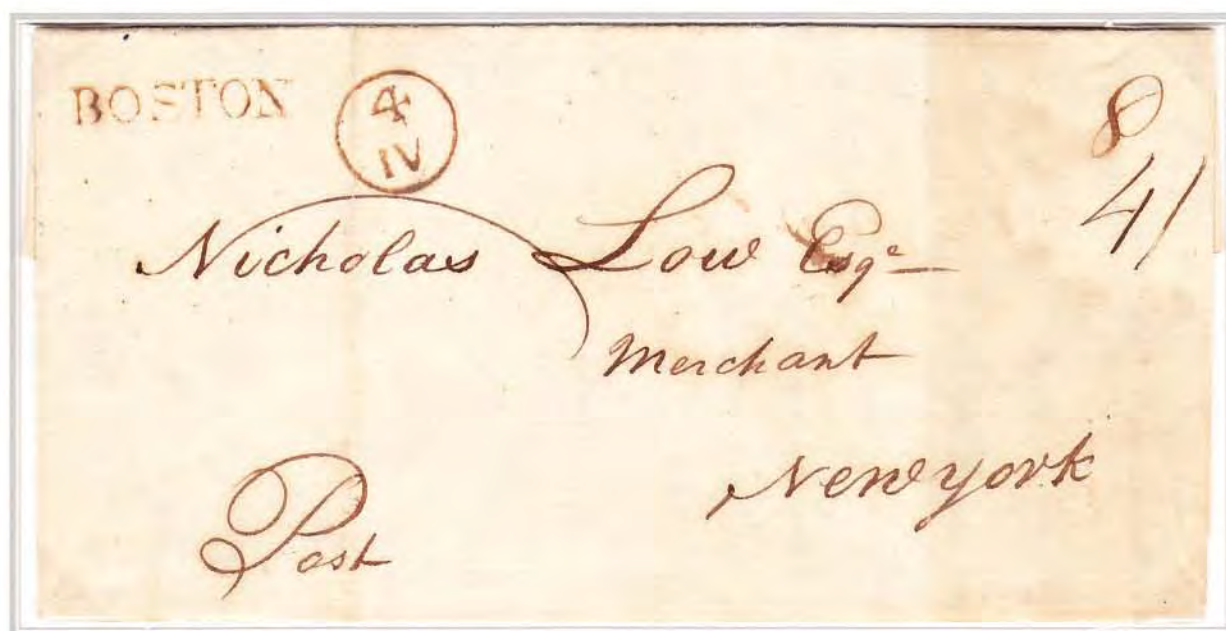 BOSTON
4
IV
8
4/
Nicholas Low Esqe
Merchant
New york
Post